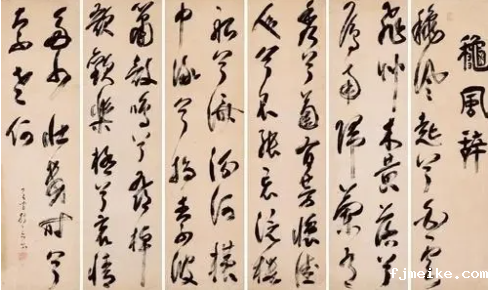 龝風辭
龝風起兮白雲
飛草木黄落兮
雁南歸蘭有
秀兮菊有芳懷佳
人兮不能忘泛樓
船兮濟汾河橫
中流兮揚素波
簫鼓鳴兮發棹
歌歡樂極兮哀情
多少壯幾時兮
奈老何
fjmeike.com